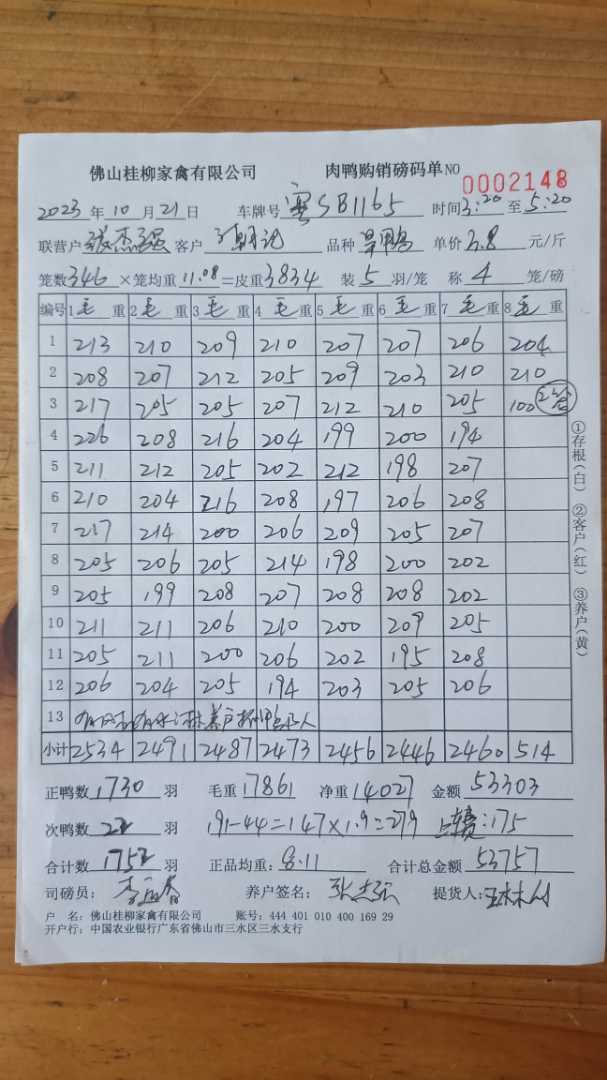 佛山桂柳家禽有限公司 肉鸭购销磅码单 NO 0002148
2023 年 10 月 21 日 车牌号 粤SB1165 时间 3:20 至 5:20
联营户 张杰强 客户 品种 旱鸭 单价 3.8 元/斤
笼数 346 ×笼均重 11.08 =皮重 3834 装 5 羽/笼 称 4 笼/磅
编号 1 毛 重 2 毛 重 3 毛 重 4 毛 重 5 毛 重 6 毛 重 7 毛 重 8 毛 重
1 213 210 209 210 207 207 206 204
2 208 207 212 205 209 203 210 210
3 217 205 205 207 212 210 205 100 2笼
4 226 208 216 204 199 200 194
5 211 212 205 202 212 198 207
6 210 204 216 208 197 206 208
7 217 214 200 206 209 205 207
8 205 206 205 214 198 200 202
9 205 199 208 207 208 208 202
10 211 211 206 210 200 209 205
11 205 211 200 206 202 195 208
12 206 204 205 194 203 205 206
13
小计 2534 2491 2487 2473 2456 2446 2460 514
正鸭数 1730 羽 毛重 17861 净重 14027 金额 53303
次鸭数 22 羽 191-44=147×1.9=279 175
合计数 1752 羽 正品均重: 8.11 合计总金额 53757
司磅员: 养户签名: 张杰强 提货人:
户 名: 佛山桂柳家禽有限公司 账号: 444 401 010 400 169 29
开户行: 中国农业银行广东省佛山市三水区三水支行
①存根(白) ②客户(红) ③养户(黄)